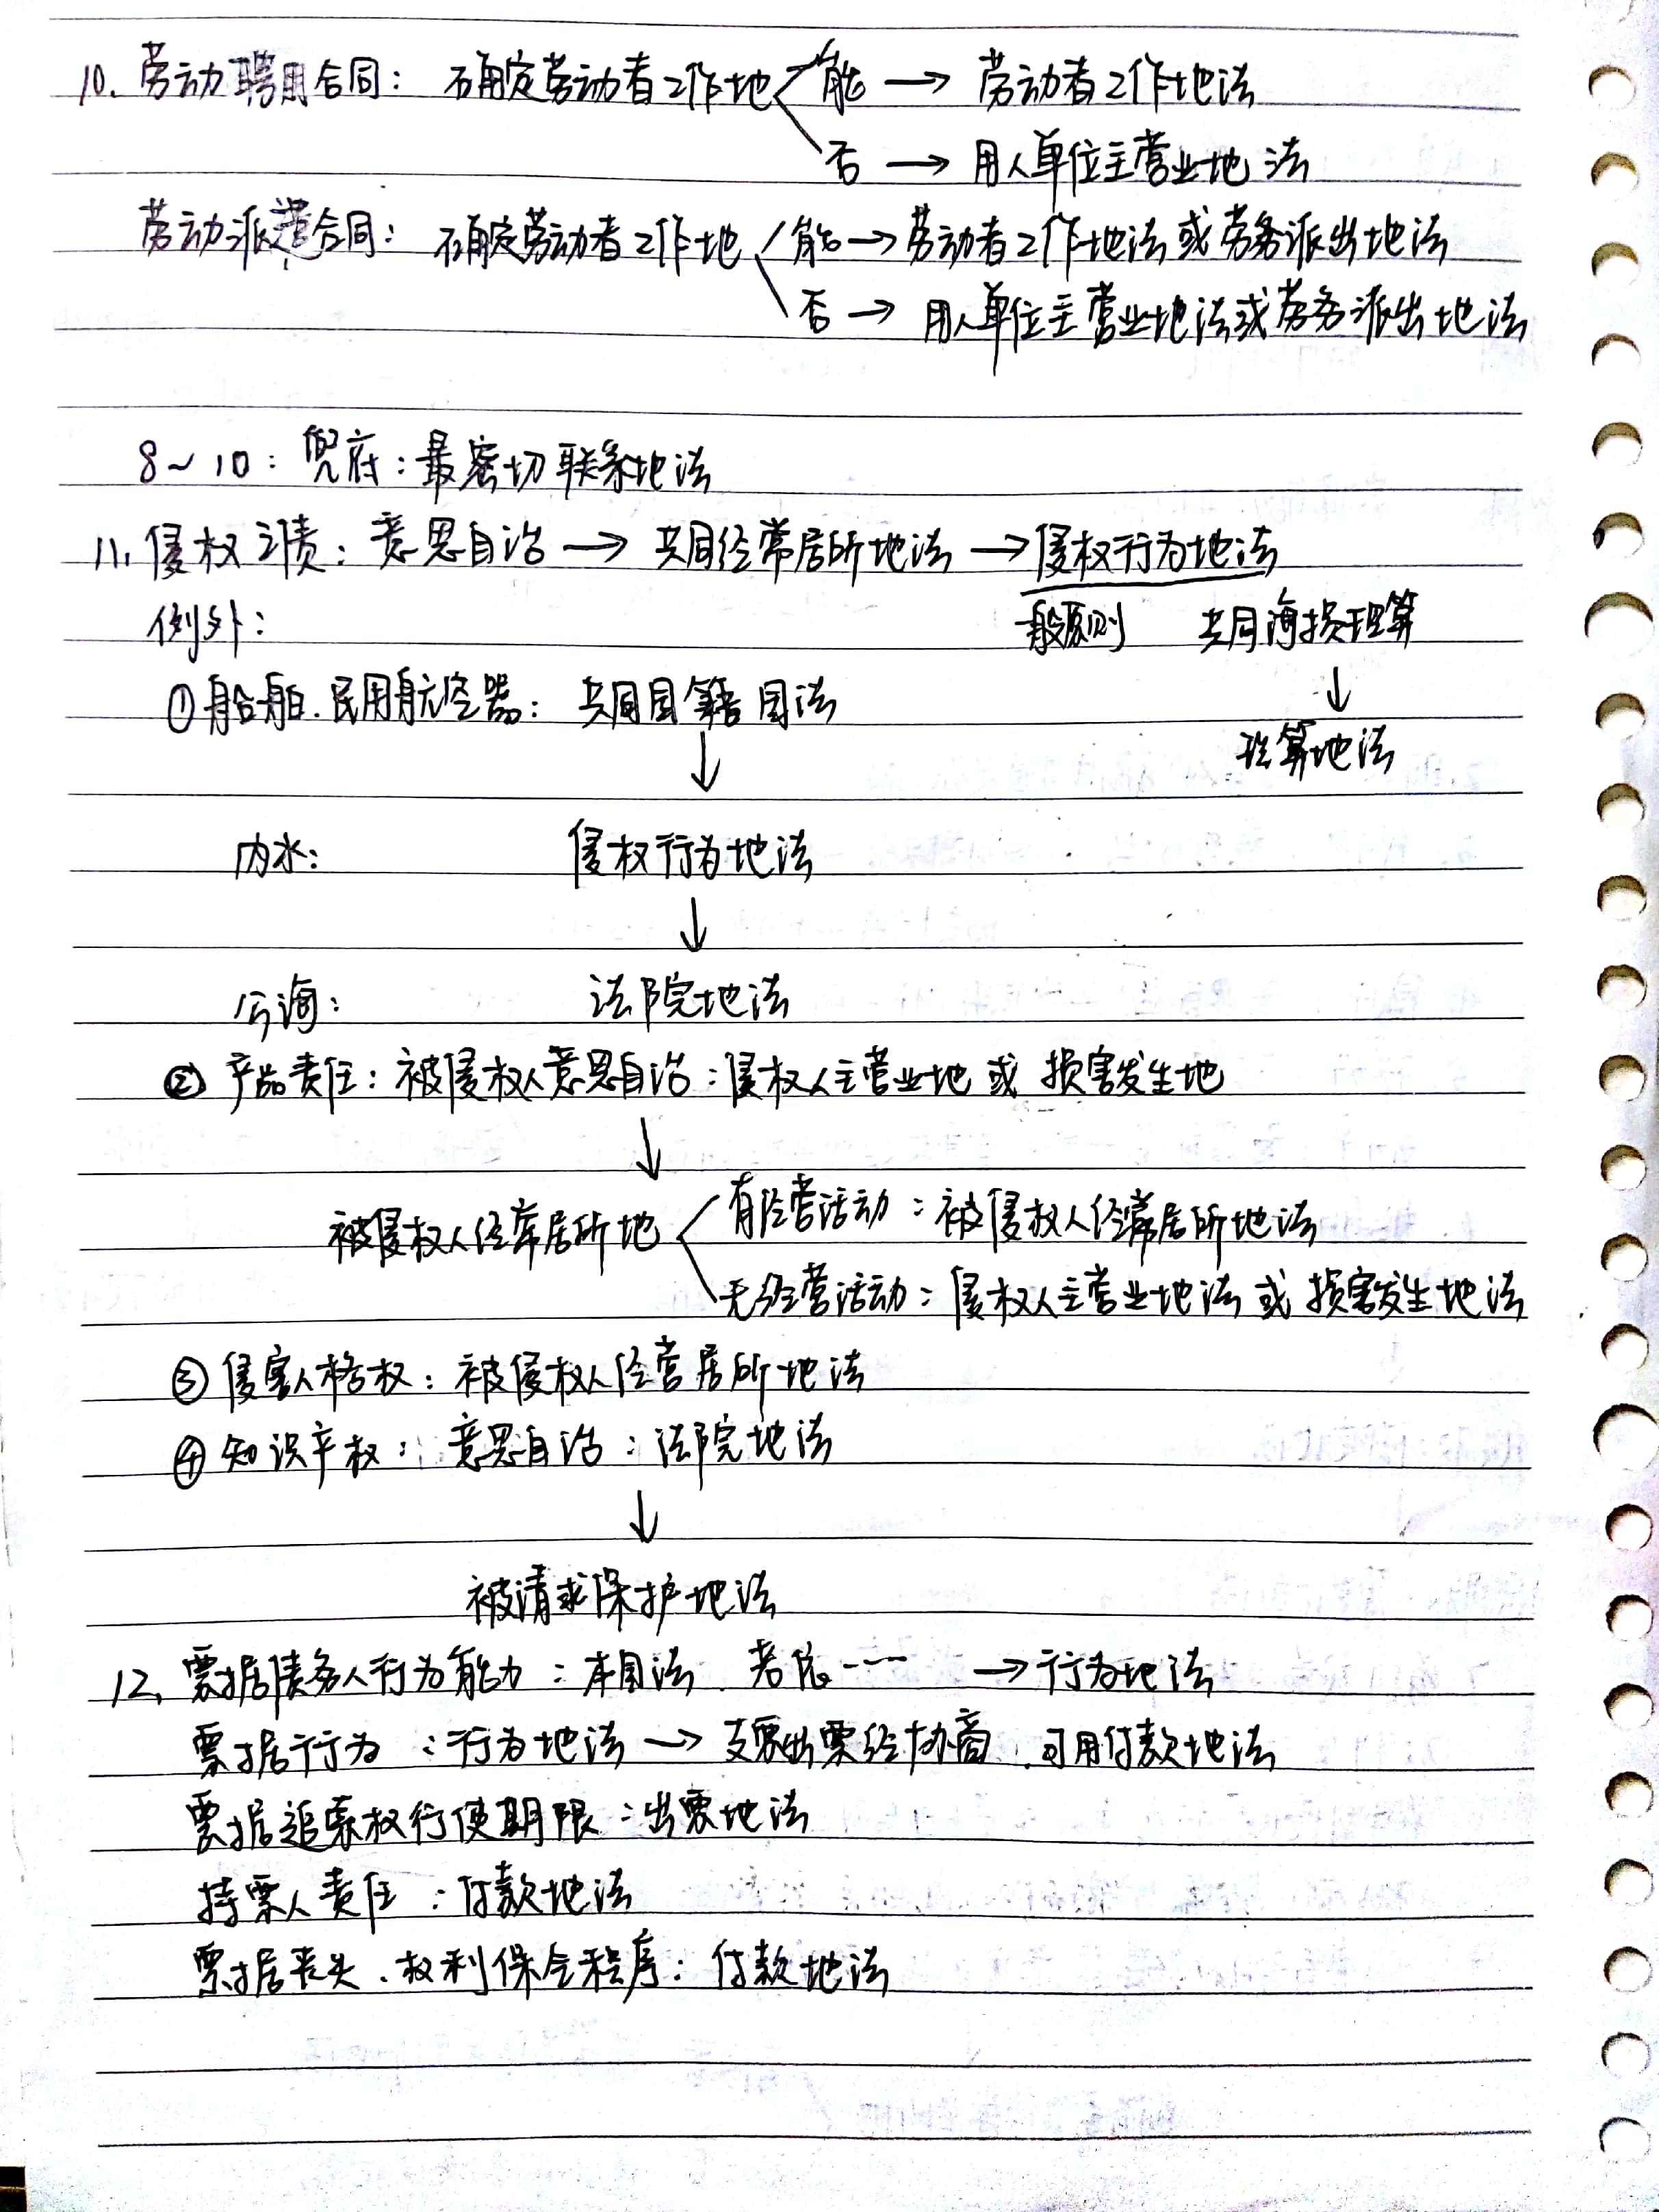 10. 劳动聘用合同：确定劳动者工作地 能 → 劳动者工作地法
否 → 用人单位主营业地法
劳动派遣合同：确定劳动者工作地 能 → 劳动者工作地法或劳务派出地法
否 → 用人单位主营业地法或劳务派出地法
8～10：兜底：最密切联系地法
11. 侵权之债：意思自治 → 共同经常居所地法 → 侵权行为地法
例外： 一般原则 共同海损理算
↓
①船舶、民用航空器：共同国籍国法 理算地法
↓
内水： 侵权行为地法
↓
公海： 法院地法
② 产品责任：被侵权人意思自治：侵权人主营业地 或 损害发生地
↓
被侵权人经常居所地 有经营活动：被侵权人经常居所地法
无经营活动：侵权人主营业地法 或 损害发生地法
③ 侵害人格权：被侵权人经营居所地法
④ 知识产权：意思自治：法院地法
↓
被请求保护地法
12. 票据债务人行为能力：本国法. 若依---- → 行为地法
票据行为：行为地法 → 支票出票经协商，可用付款地法
票据追索权行使期限：出票地法
持票人责任：付款地法
票据丧失、权利保全程序：付款地法